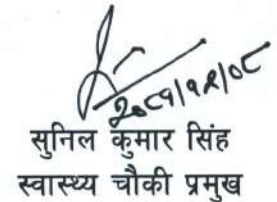 २०८१/१२/०८
सुनिल कुमार सिंह
स्वास्थ्य चौकी प्रमुख